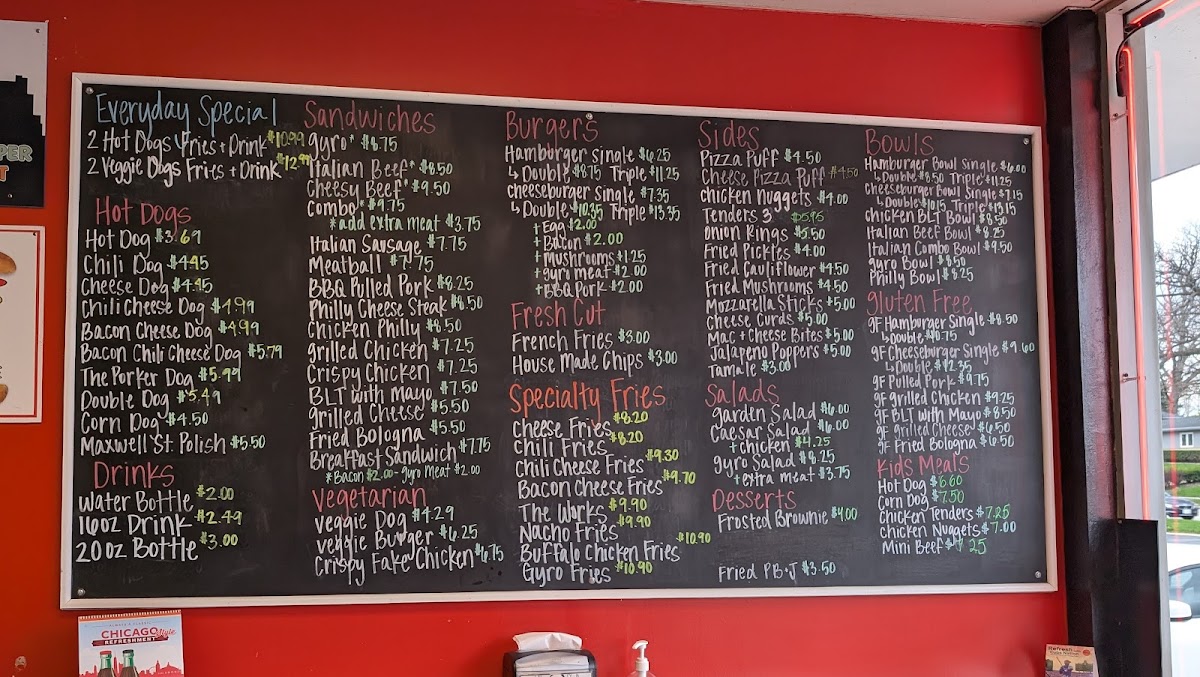 Everyday Special
2 Hot Dogs Fries + Drink $10.99
2 Veggie Dogs Fries + Drink $12.99
Hot Dogs
Hot Dog $3.69
Chili Dog $4.45
Cheese Dog $4.45
Chili Cheese Dog $4.99
Bacon Cheese Dog $4.99
Bacon Chili Cheese Dog $5.79
The Porker Dog $5.99
Double Dog $5.49
Corn Dog $4.50
Maxwell St. Polish $5.50
Drinks
Water Bottle $2.00
16oz Drink $2.49
20oz Bottle $3.00
Sandwiches
gyro* $8.75
Italian Beef* $8.50
Cheesy Beef* $9.50
Combo* $9.75
*add extra meat $3.75
Italian Sausage $7.75
Meatball $7.75
BBQ Pulled Pork $8.25
Philly Cheese Steak $8.50
Chicken Philly $8.50
grilled Chicken $7.25
Crispy Chicken $7.25
BLT with Mayo $7.50
grilled Cheese $5.50
Fried Bologna $5.50
Breakfast Sandwich $7.75
*Bacon $2.00 - gyro meat $2.00
Vegetarian
veggie Dog $4.29
veggie Burger $6.25
Crispy Fake Chicken $6.75
Burgers
Hamburger single $6.25
↳ Double $8.75 Triple $11.25
cheeseburger Single $7.35
↳ Double $10.35 Triple $13.35
+ Egg $2.00
+ Bacon $2.00
+ Mushrooms $1.25
+ gyro meat $2.00
+ BBQ Pork $2.00
Fresh Cut
French Fries $3.00
House Made Chips $3.00
Specialty Fries
Cheese Fries $8.20
Chili Fries $8.20
Chili Cheese Fries $9.30
Bacon Cheese Fries $9.70
The Works $9.90
Nacho Fries $9.90
Buffalo Chicken Fries $10.90
Gyro Fries $10.90
Sides
Pizza Puff $4.50
Cheese Pizza Puff $4.50
chicken nuggets $4.00
Tenders 3 $5.95
Onion Rings $5.50
Fried Pickles $4.00
Fried Cauliflower $4.50
Fried Mushrooms $4.50
Mozzarella Sticks $5.00
Cheese Curds $5.00
Mac + Cheese Bites $5.00
Jalapeno Poppers $5.00
Tamale $3.00
Salads
garden Salad $6.00
Caesar Salad $6.00
+ chicken $4.25
gyro Salad $8.25
+ extra meat $3.75
Desserts
Frosted Brownie $4.00
Fried PB+J $3.50
Bowls
Hamburger Bowl Single $6.00
↳ Double $8.50 Triple $11.25
cheeseburger Bowl Single $7.15
↳ Double $10.15 Triple $13.15
chicken BLT Bowl $8.50
Italian Beef Bowl $8.25
Italian Combo Bowl $9.50
gyro Bowl $8.50
Philly Bowl $8.25
gluten Free
gF Hamburger Single $8.50
↳ Double $10.75
gF Cheeseburger Single $9.60
↳ Double $12.35
gF Pulled Pork $9.75
gF grilled Chicken $9.25
gF BLT with Mayo $8.50
gF grilled Cheese $6.50
gF Fried Bologna $6.50
Kids Meals
Hot Dog $6.60
Corn Dog $7.50
Chicken Tenders $7.25
Chicken Nuggets $7.00
Mini Beef $7.25
CHICAGO Style
REFRESHMENT
Refresh